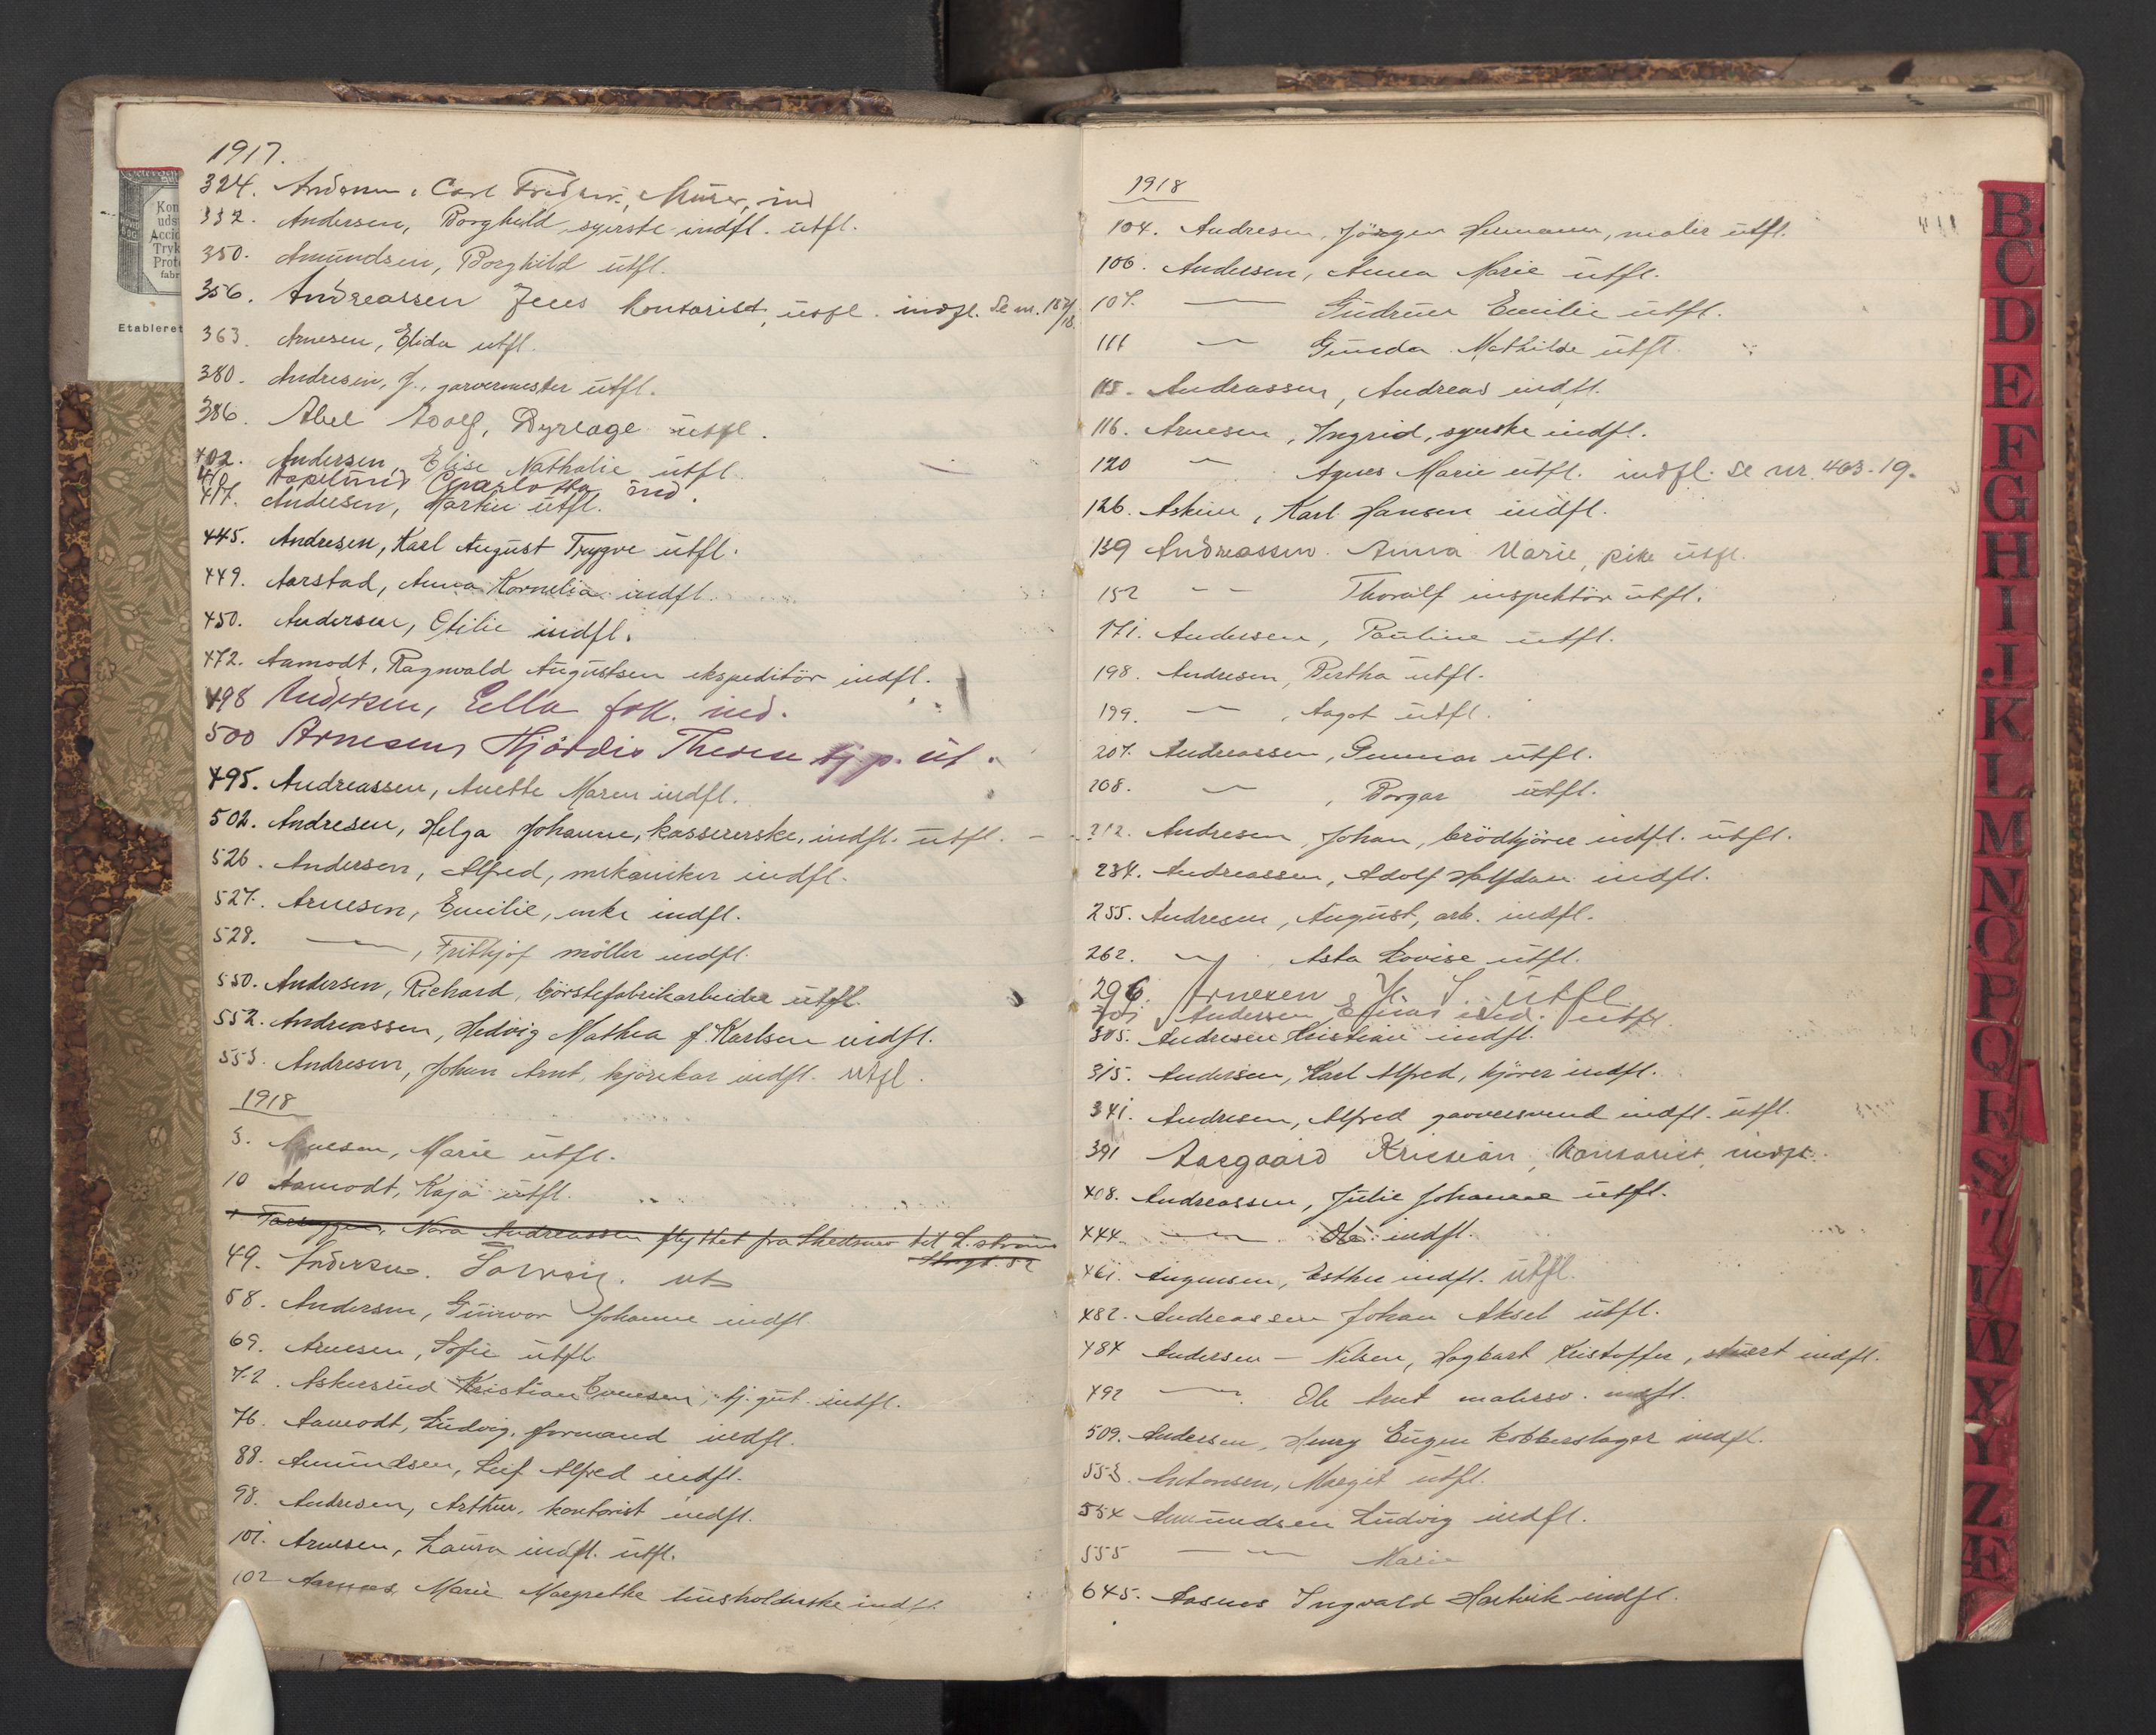 1917.
324. Carl Fredrik, Murer, ind
332. Andersen, Borghild syerske indfl. utfl.
350. Amundsen, Borghild utfl.
356. Andreassen Jens kontorist, utfl. indfl. Se nr. 187/18.
363. Arnesen, Elida utfl.
380. Andresen, J., garvermester utfl.
386. Abel Adolf, Dyrlæge utfl.
402. Andersen, Elise Nathalie utfl.
Charlotta ind.
417. Andersen, Martin utfl.
445. Andresen, Karl August Trygve utfl.
449. Aarstad, Anna Kornelia indfl.
450. Andersen, Otilie indfl.
472. Aamodt, Ragnvald Augustsen ekspeditör indfl.
498 Andersen, Ella frk. ind.
500 Arnesen Hjördis Therese tj.p. ut.
495. Andreassen, Anette Maren indfl.
502. Andresen, Helga Johanne, kassererske, indfl. utfl.
526. Andersen, Alfred, mekaniker indfl.
527. Arnesen, Emilie, enke indfl.
528. — , Frithjof möller indfl.
550. Andersen, Richard, börstefabrikarbeider utfl.
552. Andreassen, Hedvig Mathea f. Karlsen indfl.
553. Andresen, Johan Arnt, kjörekar indfl. utfl.
1918
3. Arnesen, Marie utfl.
10 Aamodt, Kaja utfl.
Nora Andreassen flyttet fra Skedsmo til L.ströms
Stregt. 52
49. Andersen. Solveig. ut
58. Andersen, Gunvor Johanne indfl.
69. Arnesen, Sofie utfl.
72. Askersrud Kristian Evensen, tj.gut. indfl.
76. Aamodt, Ludvig, formand indfl.
88. Amundsen, Leif Alfred indfl.
98. Andresen, Arthur, kontorist indfl.
101. Arnesen, Laura indfl. utfl.
102 Aarnæs, Marie Margrethe husholderske indfl.
1918
104. Andresen, Jörgen Hermann, maler utfl.
106. Andersen, Anna Marie utfl.
107. — Gudrun Emilie utfl.
111 — Gunda Mathilde utfl.
115. Andreassen, Andreas indfl.
116. Arnesen, Ingrid, syerske indfl.
120 — Agnes Marie utfl. indfl. se nr. 463-19.
126. Askim, Karl Hansen indfl.
139 Andreassen. Anna Marie, pike utfl.
152 - - Thoralf inspektör utfl.
171. Andersen, Pauline utfl.
198. Andresen, Bertha utfl.
199. — , Aagot utfl.
207. Andreassen, Gunnar utfl.
208. — , Borgar utfl.
212. Andresen, Johan, brödkjörer indfl. utfl.
234. Andreassen, Adolf Halfdan indfl.
255. Andresen, August, arb. indfl.
262. — , Asta Lovise utfl.
296. Arnesen, utfl
301 Andersen utfl.
305. Andresen Kristian indfl.
315. Andersen, Karl Alfred, kjörer indfl.
341. Andresen, Alfred garversvend indfl. utfl.
391 Aasgaard Kristian, Kontorist, indfl.
408. Andreassen, Julie Johanne utfl.
444. — Ole indfl.
461. Esther indfl. utfl.
482. Andreassen Johan Aksel utfl.
484 Andersen - Nilsen, Hagbart Kristoffer, stuert indfl.
492 — Ole Arnt malersv. indfl.
509. Andersen, Henry Eugen kobberslager indfl.
553. Antonsen, Margit utfl.
554 Amundsen Ludvig indfl.
555 — — Marie
645. Aasnes Ingvald Hartvik indfl.
Etableret
B
C
D
E
F
G
H
I
J
K
L
M
N
O
P
Q
R
S
T
U
W
X
Y
Z
Æ